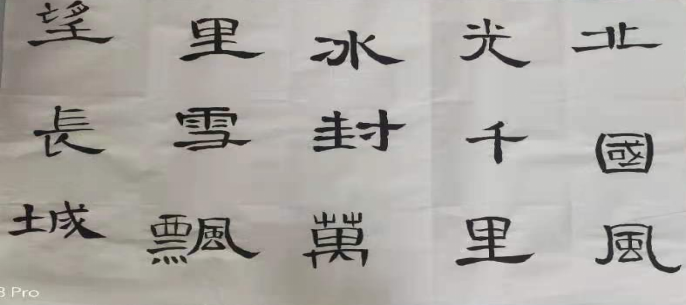 北國風
光千里
冰封萬
里雪飄
望長城
8 Pro